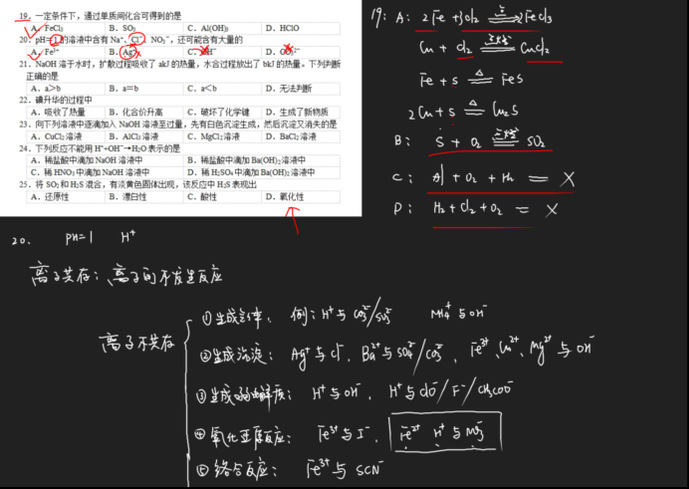 19. 一定条件下，通过单质间化合可得到的是
A. FeCl₃ B. SO₂ C. Al(OH)₃ D. HClO
20. pH=1的溶液中含有Na⁺、Cl⁻、NO₃⁻，还可能含有大量的
A. Fe³⁺ B. Ag⁺ C. OH⁻
21. NaOH溶于水时，扩散过程吸收了akJ的热量，水合过程放出了bkJ的热量。下列判断
正确的是
A. a>b B. a=b C. a<b D. 无法判断
22. 碘升华的过程中
A. 吸收了热量 B. 化合价升高 C. 破坏了化学键 D. 生成了新物质
23. 向下列溶液中逐滴加入NaOH溶液至过量，先有白色沉淀生成，然后沉淀又消失的是
A. CuCl₂溶液 B. AlCl₃溶液 C. MgCl₂溶液 D. BaCl₂溶液
24. 下列反应不能用H⁺+OH⁻→H₂O表示的是
A. 稀盐酸中滴加NaOH溶液中 B. 稀盐酸中滴加Ba(OH)₂溶液中
C. 稀HNO₃中滴加NaOH溶液中 D. 稀H₂SO₄中滴加Ba(OH)₂溶液中
25. 将SO₂和H₂S混合，有淡黄色固体出现，该反应中H₂S表现出
A. 还原性 B. 漂白性 C. 酸性 D. 氧化性
19: A: 2Fe + 3Cl₂ 点燃═ 2FeCl₃
Cu + Cl₂ 点燃═ CuCl₂
Fe + S △═ FeS
2Cu + S △═ Cu₂S
B: S + O₂ 点燃═ SO₂
C: Al + O₂ + H₂ = ×
D: H₂ + Cl₂ + O₂ = ×
20. PH=1 H⁺
离子共存：离子间不发生反应
离子不共存
①生成气体，例：H⁺与CO₃²⁻/SO₃²⁻ NH₄⁺与OH⁻
②生成沉淀：Ag⁺与Cl⁻、Ba²⁺与SO₄²⁻/CO₃²⁻，Fe³⁺、Cu²⁺、Mg²⁺与OH⁻
③生成弱电解质：H⁺与OH⁻、H⁺与ClO⁻/F⁻/CH₃COO⁻
④氧化还原反应：Fe³⁺与I⁻、Fe²⁺ H⁺与NO₃⁻
⑤络合反应：Fe³⁺与SCN⁻